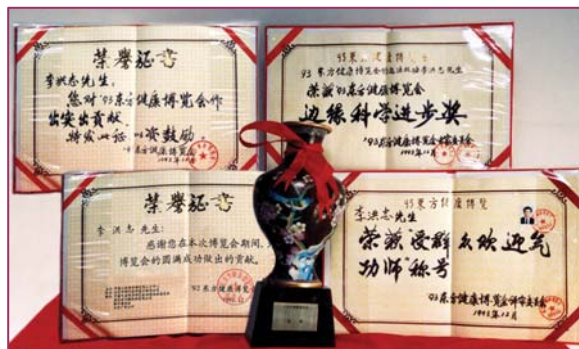 荣誉证书
李洪志先生:
您对'93东方健康博览会作
出突出贡献,
特发此证,以资鼓励。
'93东方健康博览会
1993年12月
93东方健康博览会
荣获'93东方健康博览会
边缘科学进步奖
'93东方健康博览会评审委员会
1993年12月
荣誉证书
李洪志先生:
感谢您在本次博览会期间,
博览会的圆满成功做出的贡献。
'93东方健康博览会
93东方健康博览
李洪志先生
荣获"受群众欢迎气
功师"称号
'93东方健康博览会评审委员会
1993年12月